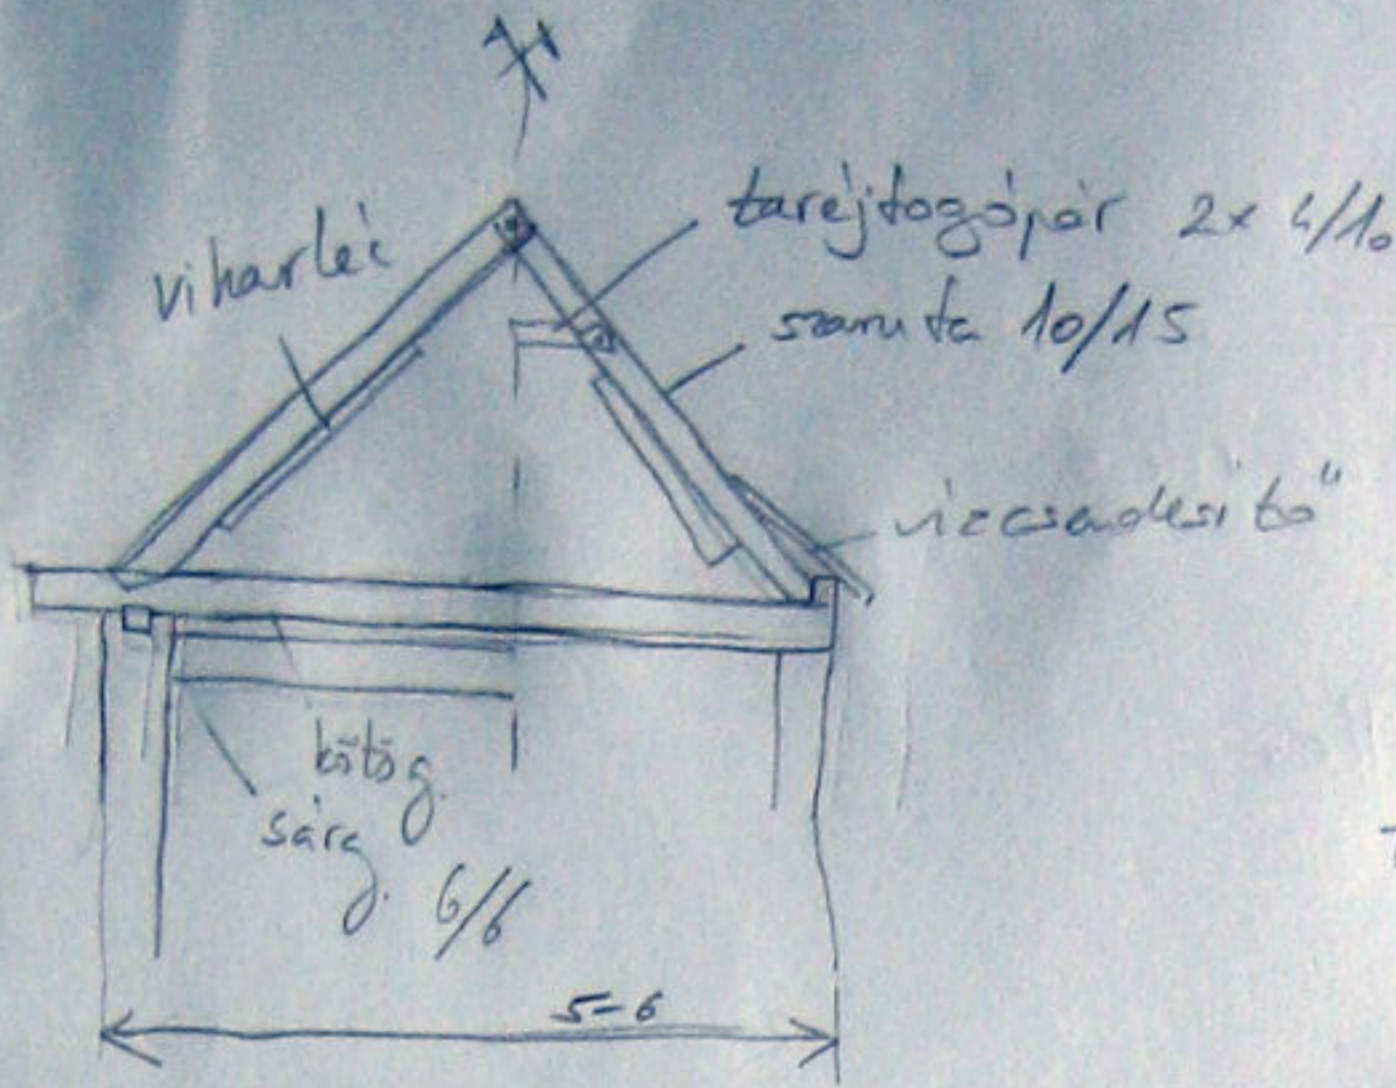 viharléc
taréjfogópár 2x 4/10
szaruta 10/15
vízcsendesítő
kötőg.
sárg.
6/6
5-6